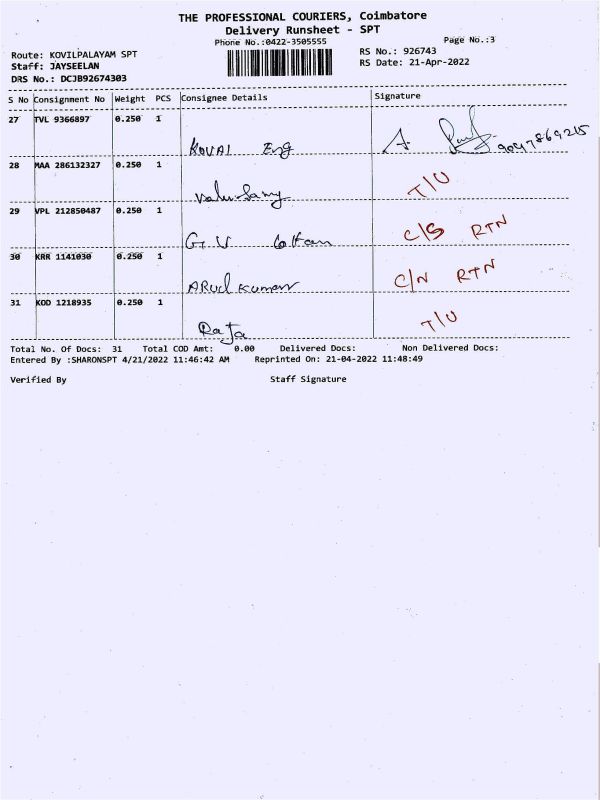 THE PROFESSIONAL COURIERS, Coimbatore
Delivery Runsheet - SPT
Phone No.:0422-3505555
Page No.:3
Route: KOVILPALAYAM SPT
RS No.: 926743
Staff: JAYSEELAN
RS Date: 21-Apr-2022
DRS No.: DCJB92674303
S No Consignment No Weight PCS Consignee Details Signature
27 TVL 9366897 0.250 1
KOVAI Eng A
28 MAA 286132327 0.250 1
T/U
29 VPL 212850487 0.250 1
G.V C/S RTN
30 KRR 1141030 0.250 1
ARUL KUMAR C/N RTN
31 KOD 1218935 0.250 1
Raja T/U
Total No. Of Docs: 31 Total COD Amt: 0.00 Delivered Docs: Non Delivered Docs:
Entered By :SHARONSPT 4/21/2022 11:46:42 AM Reprinted On: 21-04-2022 11:48:49
Verified By Staff Signature